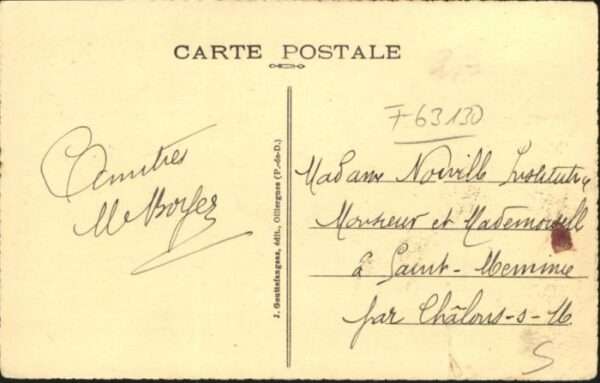 CARTE POSTALE
F 63130
Amitiés
M Boyer
J. Gouttefangeas, édit., Olliergues (P.-de-D.)
Madame Noiville Institutrice
Monsieur et Mademoiselle
à Saint-Memmie
par Châlons-s-M
S